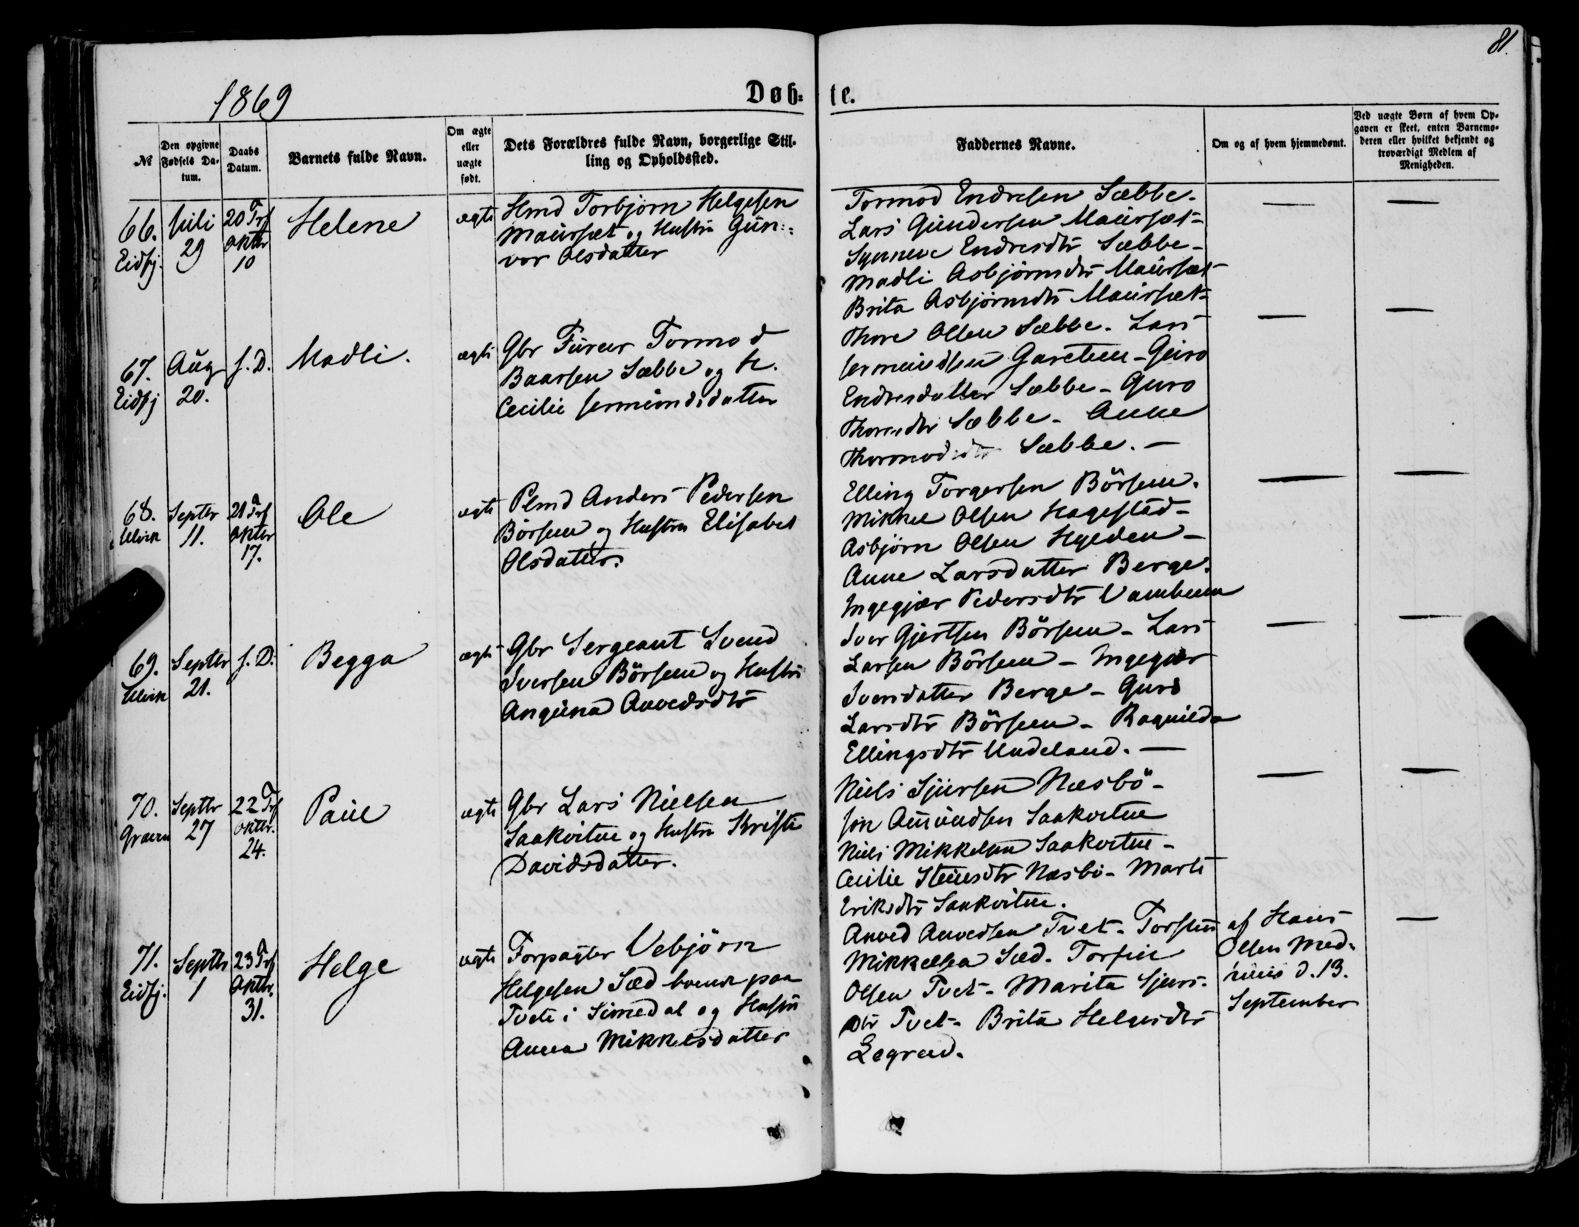 81.
1869
Døb- te.
№
Den opgivne Fødsels Datum.
Daabs Datum.
Barnets fulde Navn.
Om ægte eller uægte født.
Dets Forældres fulde Navn, borgerlige Stilling og Opholdssted.
Faddernes Navne.
Om og af hvem hjemmedømt.
Ved uægte Børn af hvem Opgaven er skeet, enten Barnemoderen eller hvilket bekjendt og troværdigt Medlem af Menigheden.
66. Eidfj.
Juli 29
20 Trf Oktbr 10
Helene
ægte
Hmd Torbjørn Helgesen
Maursæt og Hustru Gun-
vor Olsdatter
Tormod Endresen Sæbbe.
Lars Gundersen Maursæt-
Synneve Endresdtr Sæbbe-
Madli Asbjørnsdtr Maursæt-
Brita Asbjørnsdtr Maursæt-
67. Eidfj
Aug 20.
s. D.
Madli.
ægte
Gbr Furer Tormod
Baarsen Sæbbe og H.
Cecilie Sermundsdatter
Thore Olsen Sæbbe. Lars
Sermundsen Garethun - Guro
Endresdatter Sæbbe - Guro
Thoresdtr Sæbbe - Anne
Thormodsdtr Sæbbe. -
68. Ulvik
Septbr 11.
21 Trf Oktbr 17.
Ole
ægte
Plmd Anders Pedersen
Børsem og Hustru Elisabet
Olsdatter.
Elling Torgersen Børsem.
Mikkel Olsen Hagestad-
Asbjørn Olsen Hylden -
Anne Larsdatter Berge.
Ingegjær Pedersdtr Vambeim
69. Ulvik
Septbr 21.
s. D.
Begga
ægte
Gbr Sergeant Svend
Iversen Børsem og Hustru
Anguna Anvedsdtr
Iver Gjertsen Børsem - Lars
Larsen Børsem - Ingegjær
Iversdatter Berge - Guro
Larsdtr Børsem - Ragnilda
Ellingsdtr Undeland. -
70. Graven
Septbr 27
22 Trf Oktbr. 24.
Paul
ægte
Gbr Lars Nielsen
Saakvitne og Hustru Kristi
Davidsdatter.
Niels Sjursen Næsbø-
Jon Amundsen Saakvitne
Niels Mikkelsen Saakvitne-
Cecilie Steinesdtr Næsbø - Marti
Eriksdtr Saakvitne.
71. Eidfj.
Septbr 1
23 Trf Oktbr. 31.
Helge
ægte
Forpagter Vebjørn
Helgesen Sæd boende paa
Tveit i Simedal og Hustru
Anna Mikkelsdatter
Anved Anvedsen Tvet - Torsten
Mikkelsen Sæd. Torfin
Olsen Tvet - Marita Sjurs-
dtr Tvet - Brita Helgesdtr
Legreid.
af Hans
Olsen Med-
huus d. 13.
September